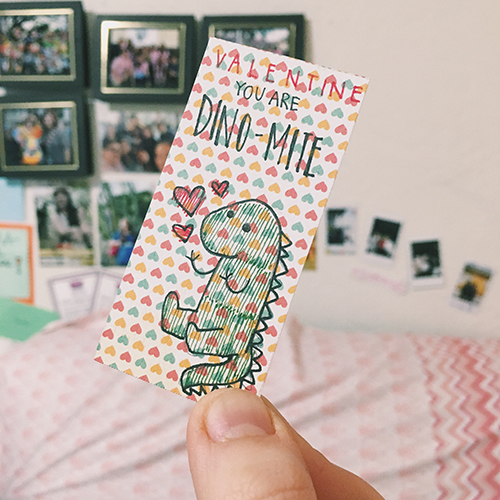 VALENTINE
YOU ARE
DINO-MITE